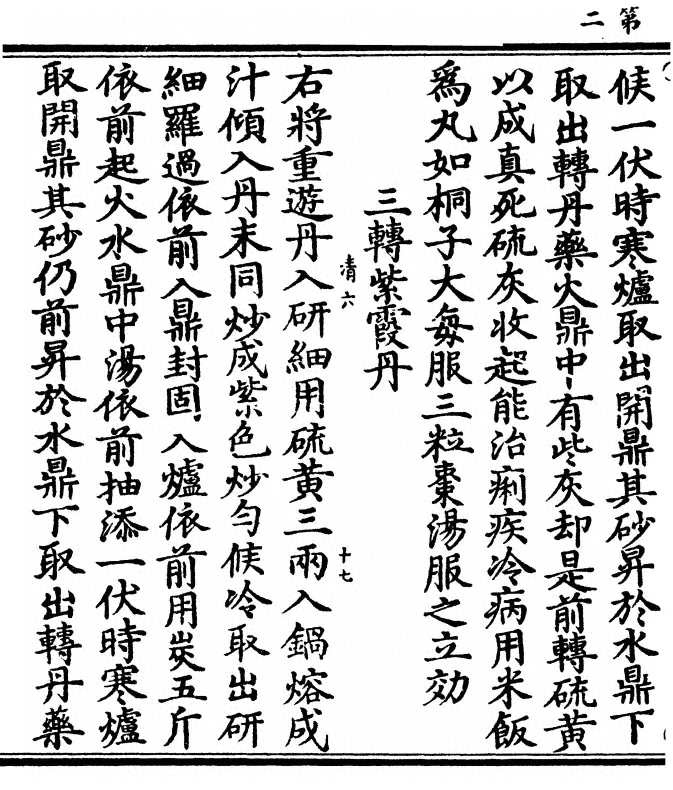 第二
候一伏時寒爐取出開鼎其砂昇於水鼎下
取出轉丹藥火鼎中有些灰却是前轉硫黄
以成真死硫灰收起能治痢疾冷病用米飯
爲丸如桐子大每服三粒棗湯服之立効
三轉紫霞丹
清六
十七
右將重遊丹入研細用硫黄三兩入鍋熔成
汁傾入丹末同炒成紫色炒勻候冷取出研
細羅過依前入鼎封固入爐依前用炭五斤
依前起火水鼎中湯依前抽添一伏時寒爐
取開鼎其砂仍前昇於水鼎下取出轉丹藥